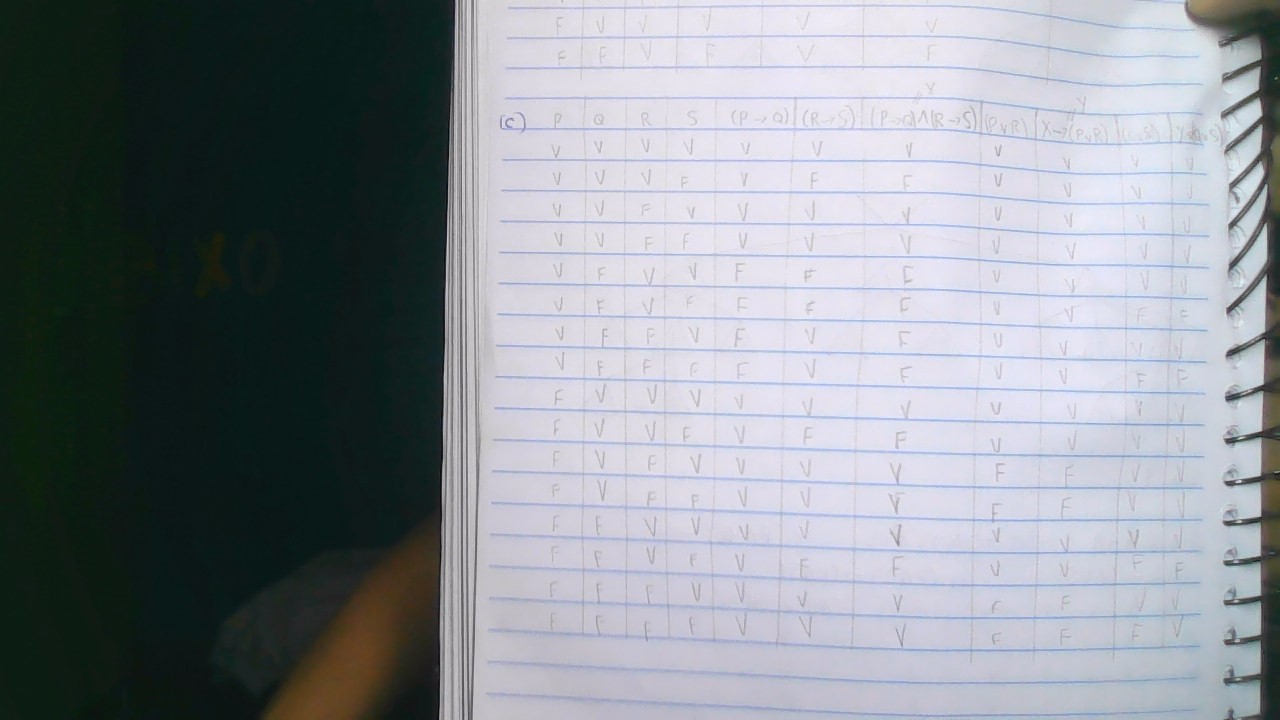 F V V V V V
F F V F V F
X Y
(c) P Q R S (P→Q) (R→S) (P→Q)∧(R→S) (P∨R) X→(P∨R)
V V V V V V V V V V V
V V V F V F F V V V V
V V F V V V V V V V V
V V F F V V V V V V V
V F V V F F F V V V V
V F V F F F F V V F F
V F F V F V F V V V V
V F F F F V F V V F F
F V V V V V V V V V V
F V V F V F F V V V V
F V F V V V V F F V V
F V F F V V F F V V
F F V V V V V V V V V
F F V F V F F V V F F
F F F V V V V F F V V
F F F F V V V F F F V